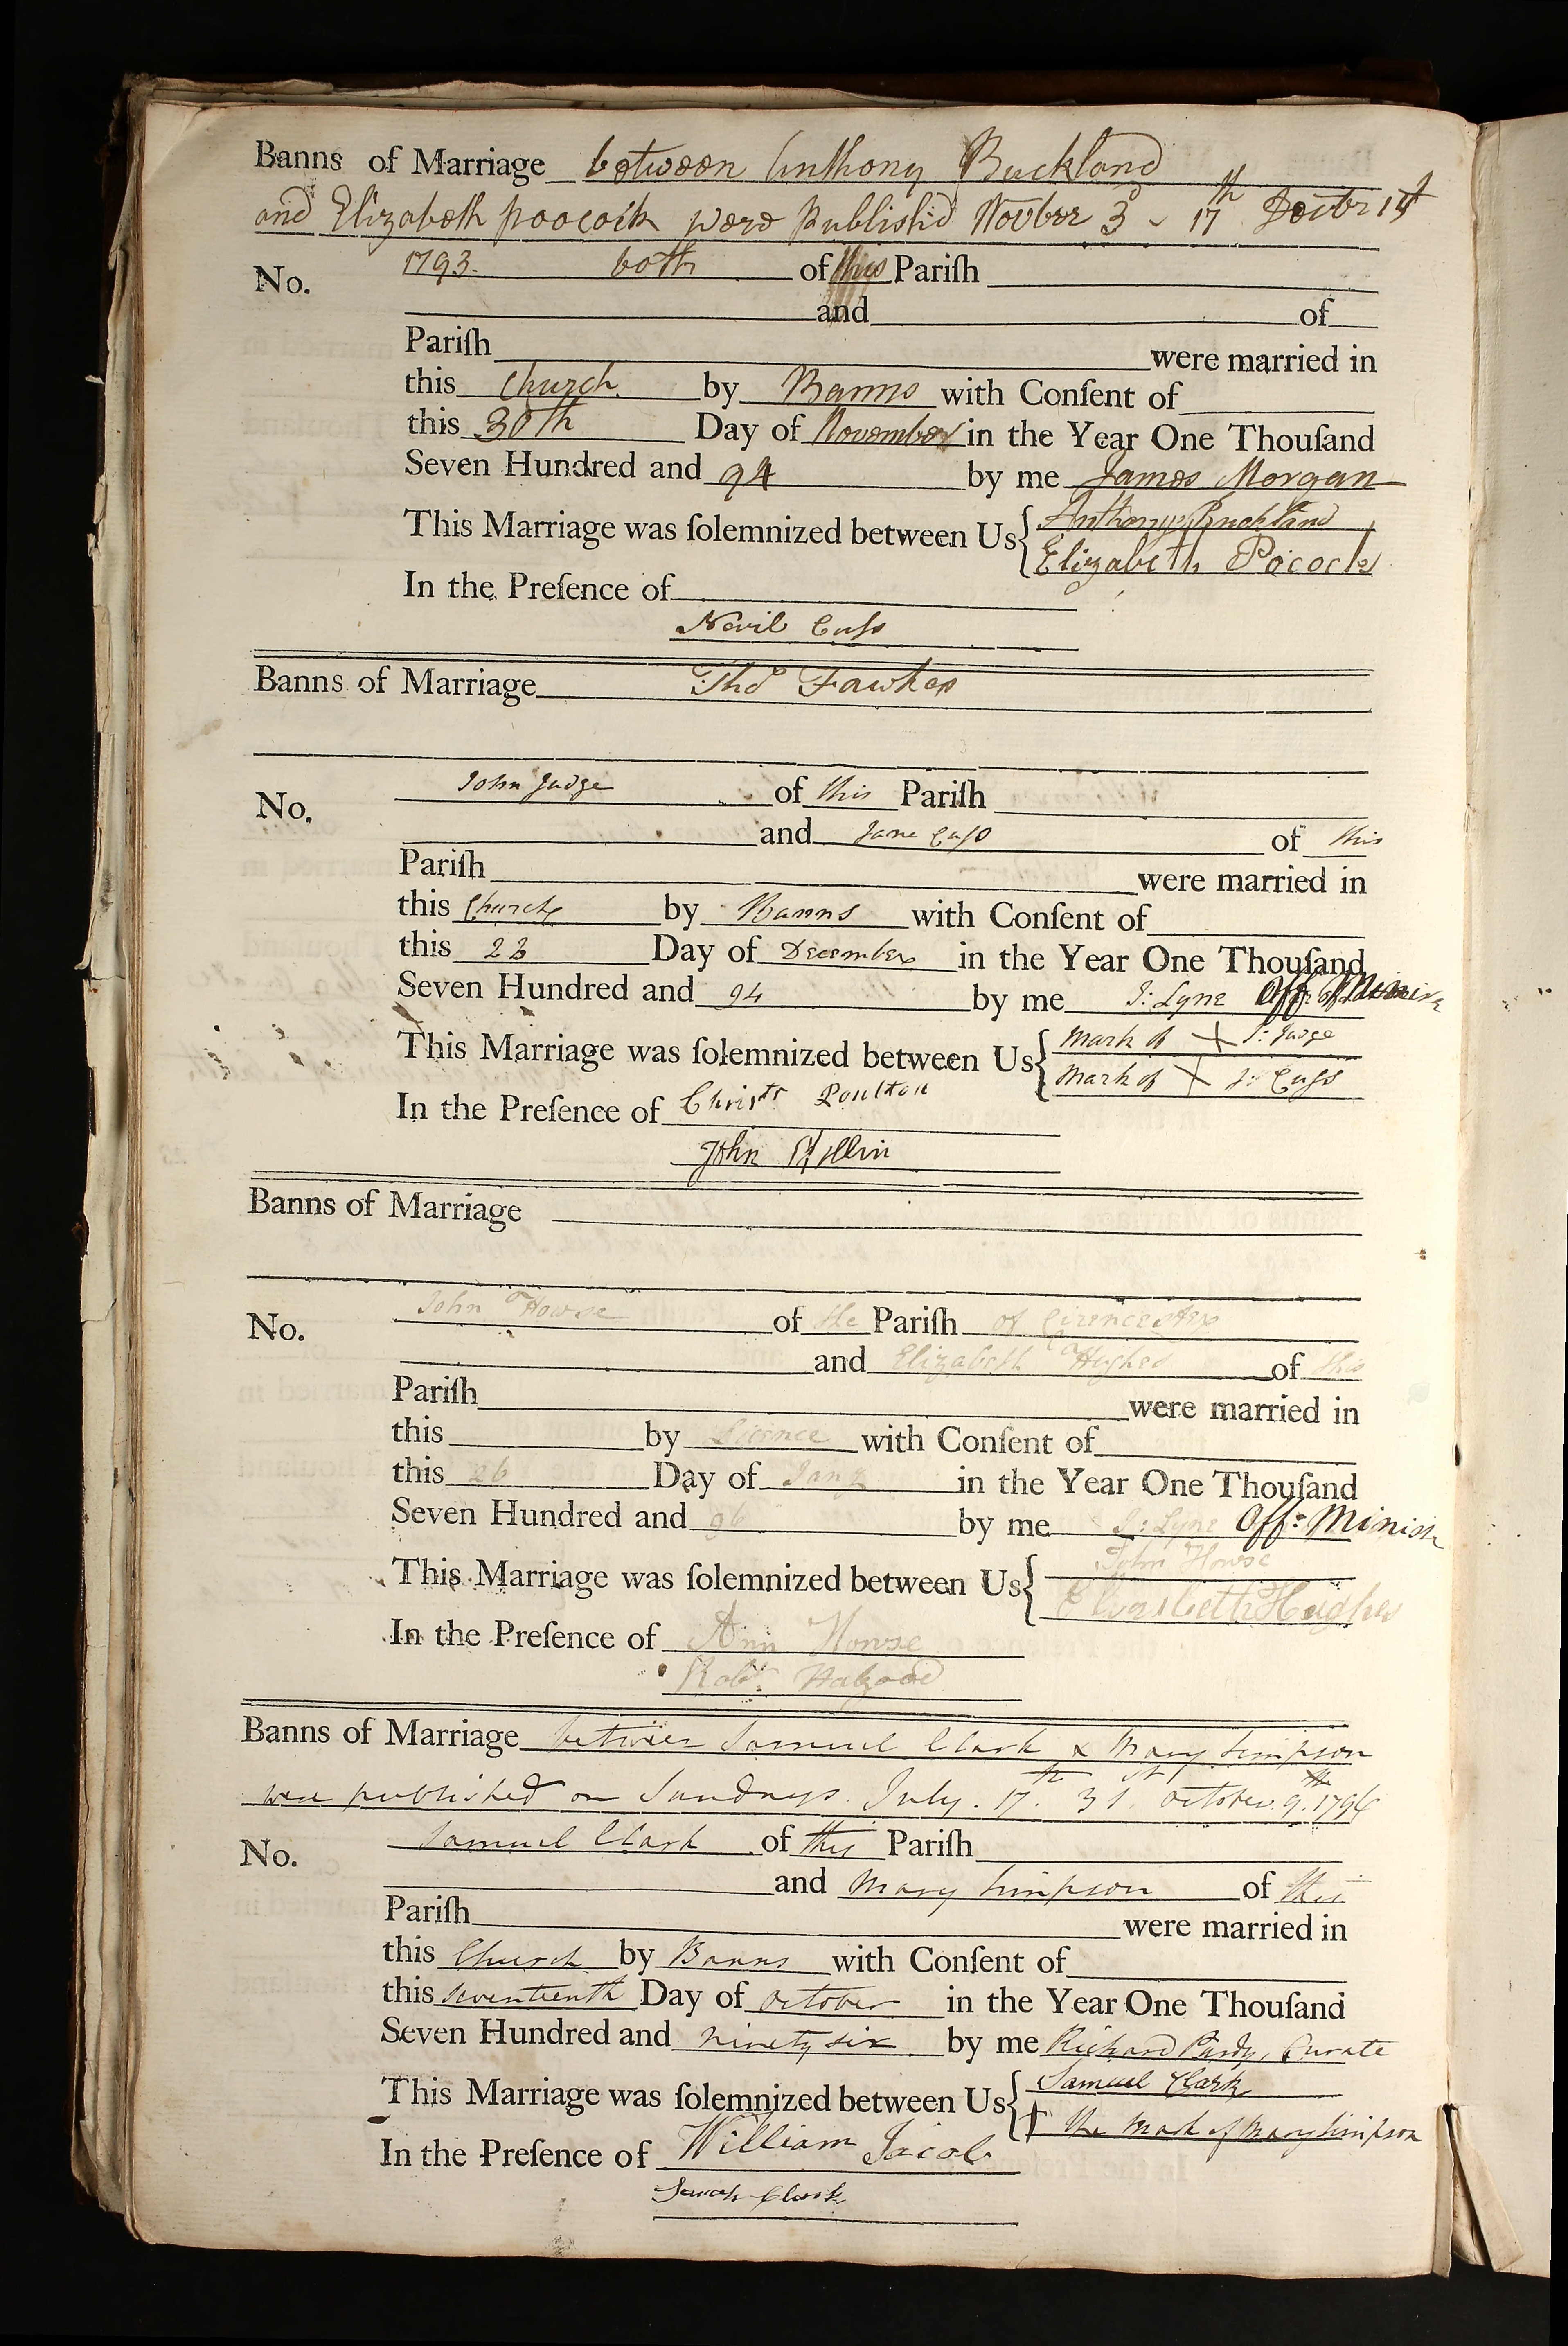 Banns of Marriage between Anthony Buckland
and Elizabeth poocock were Publishd Novbr 3d ~ 17th Decbr 1st
No. 1793. both of this Pariſh
and of
Pariſh were married in
this Church by Banns with Conſent of
this 30th Day of November in the Year One Thouſand
Seven Hundred and 94 by me James Morgan
This Marriage was ſolemnized between Us { Anthony Buckland
Elizabeth Pocock
In the Preſence of
Nevil Cuſs
Banns of Marriage Thos Fawkes
No. John Judge of this Pariſh
and Jane Cuſs of this
Pariſh were married in
this Church by Banns with Conſent of
this 23 Day of December in the Year One Thouſand
Seven Hundred and 94 by me J: Lyne Off: Minisr
This Marriage was ſolemnized between Us { Mark of X J: Judge
Mark of X J: Cuſs
In the Preſence of Christr Poulton
John
Banns of Marriage
No. John Howse of the Pariſh of Cirencester
and Elizabeth Hughes of this
Pariſh were married in
this by Licence with Conſent of
this 26 Day of Jany in the Year One Thouſand
Seven Hundred and 96 by me J: Lyne Off: Minisr
This Marriage was ſolemnized between Us { John Howse
Elizabeth Hughes
In the Preſence of Ann Howse
Robt.
Banns of Marriage between Samuel Clark & Mary Simpson
were published on Sundays. July. 17th. 31st. October. 9th. 1796
No. Samuel Clark of this Pariſh
and Mary Simpson of this
Pariſh were married in
this Church by Banns with Conſent of
this seventeenth Day of October in the Year One Thouſand
Seven Hundred and ninety six by me Richard Purdy, Curate
This Marriage was ſolemnized between Us { Samuel Clark
† the mark of Mary Simpson
In the Preſence of William Jacob
Sarah Clark